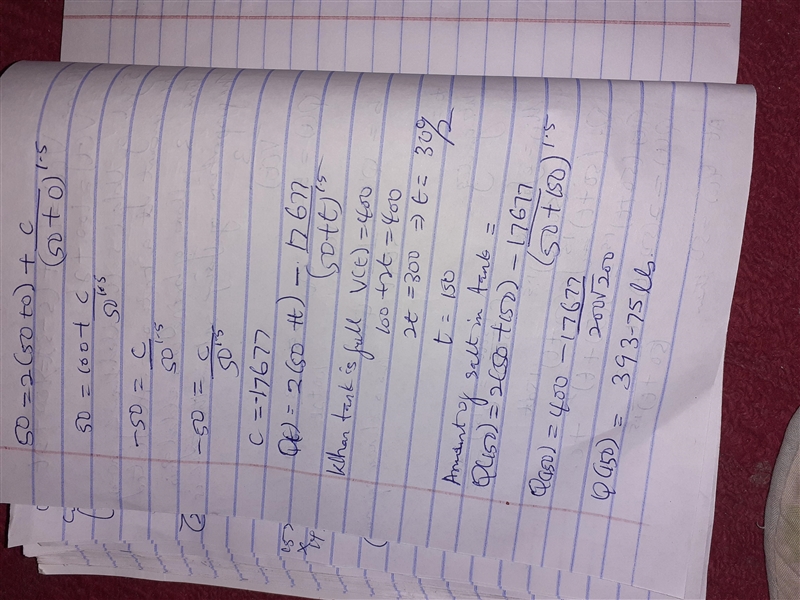 50 = 2(50+0) + c/(50+0)^1.5
50 = 100 + c/50^1.5
-50 = c/50^1.5
-50 = c/50^1.5
c = -17677
Q(t) = 2(50+t) - 17677/(50+t)^1.5
When tank is full V(t) = 400
100 + 2t = 400
2t = 300 ⇒ t = 300/2
t = 150
Amount of salt in tank =
Q(150) = 2(50+150) - 17677/(50+150)^1.5
Q(150) = 400 - 17677/200√200
Q(150) = 393.75 lb.